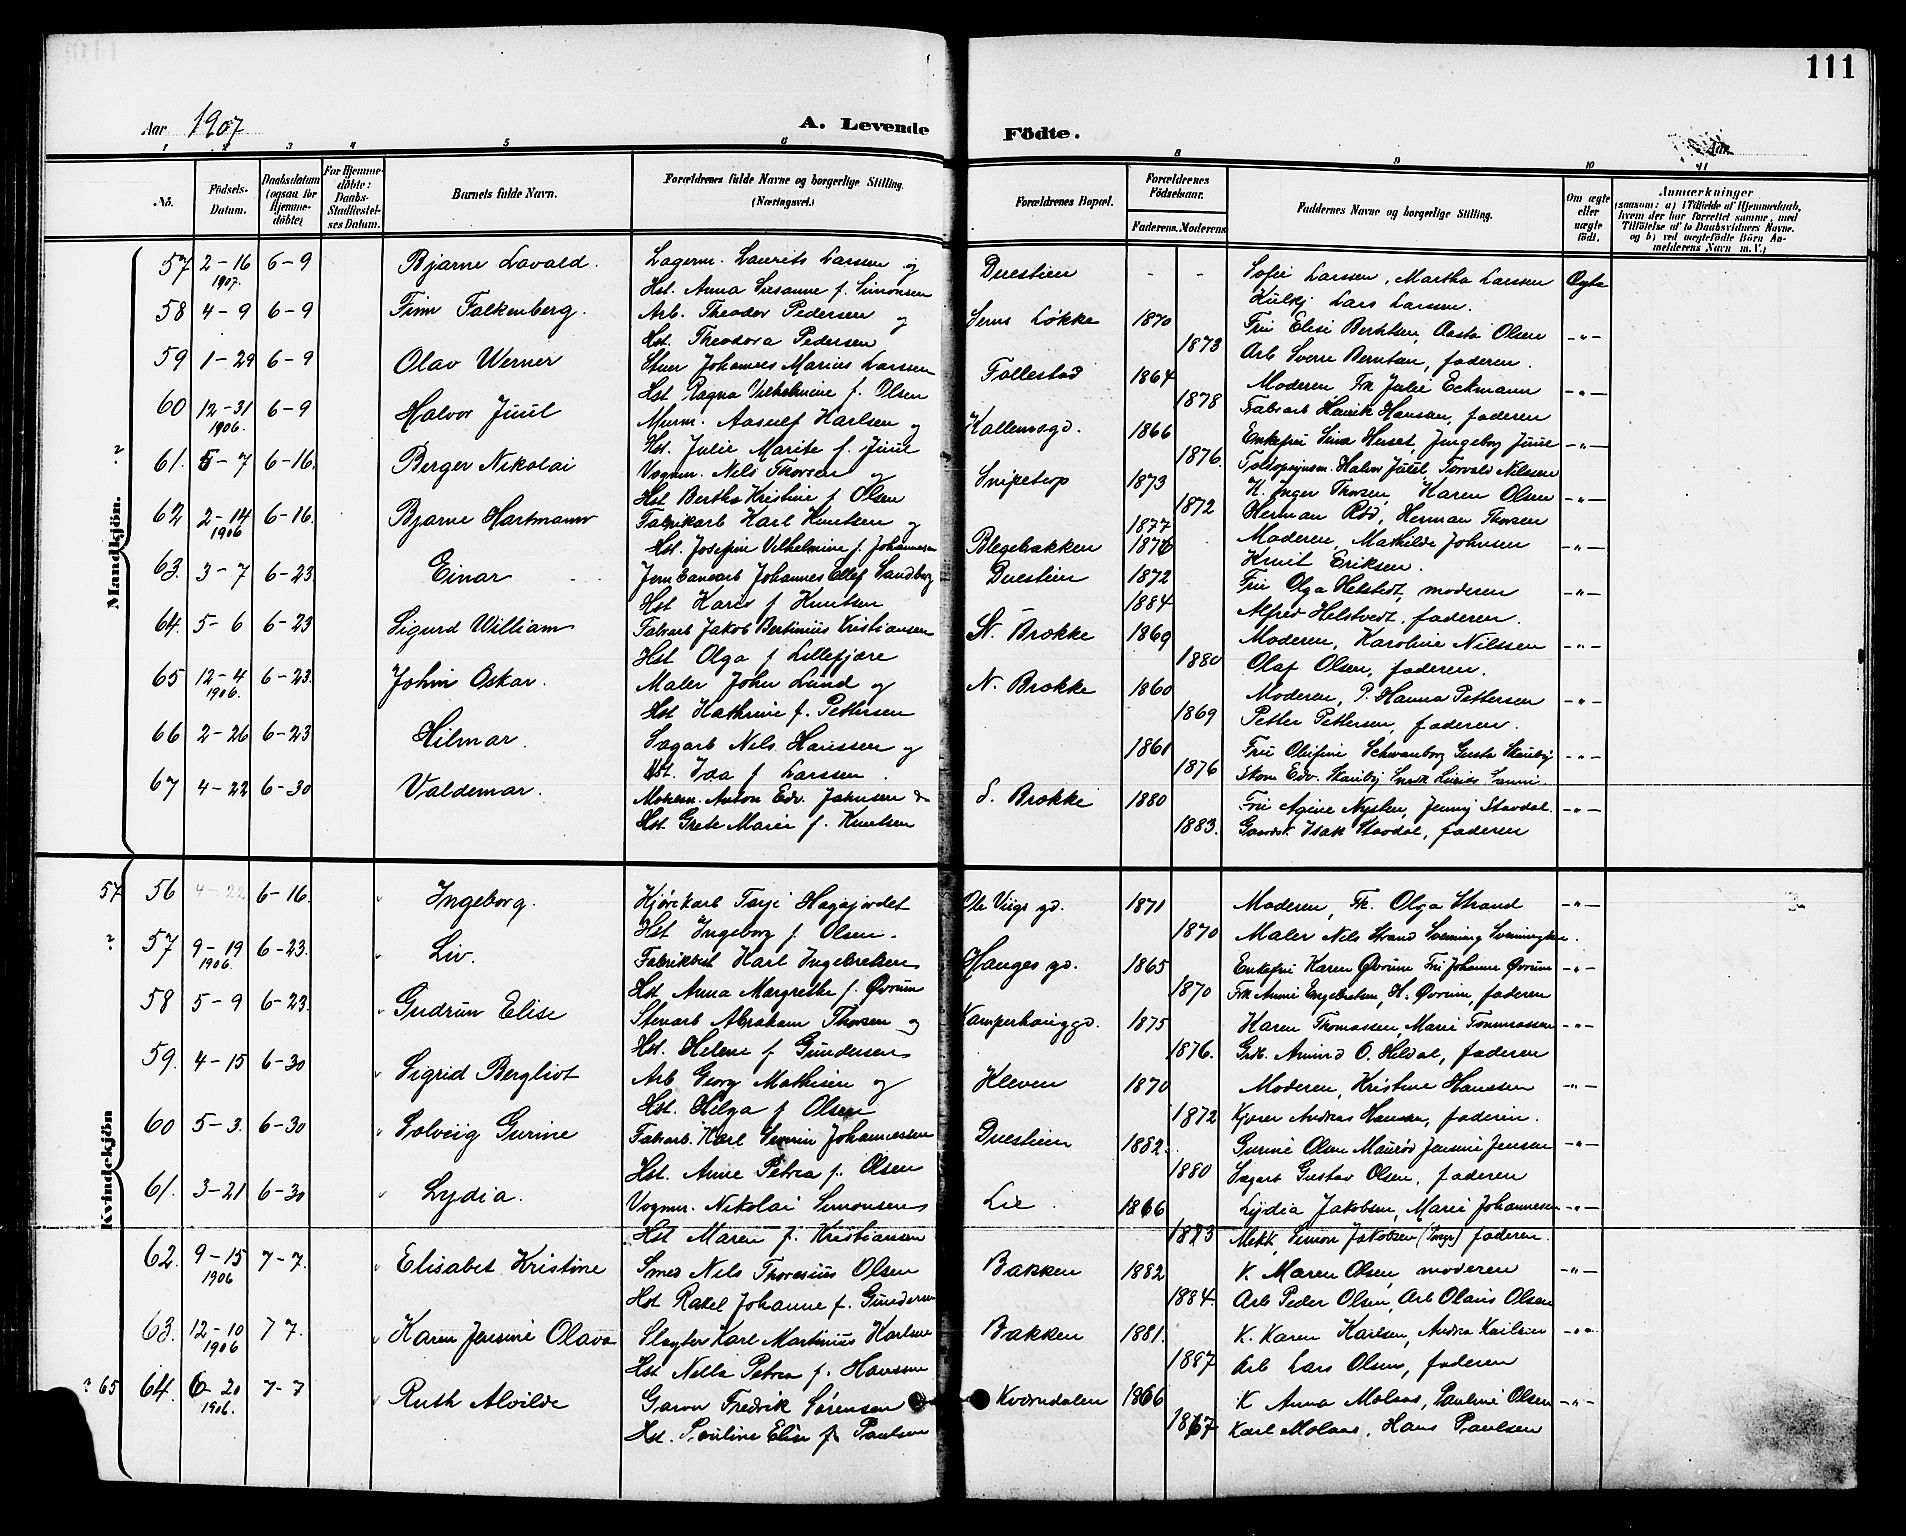 111
Aar 1907
A. Levende Födte.
Aar
1 2 3 4 5 6 8 9 10 11
No.
Födsels-Datum.
Daabsdatum (ogsaa for Hjemme-döbte)
For Hjemme-döbte: Daabs-Stadfæstelses Datum.
Barnets fulde Navn.
Forældrenes fulde Navne og borgerlige Stilling. (Næringsvei.)
Forældrenes Bopæl.
Forældrenes Födselsaar.
Faderens. Moderens
Faddernes Navne og borgerlige Stilling.
Om ægte eller uægte födt.
Anmærkninger
(saasom: a) i Tilfælde af Hjemmedaab, hvem der har forrettet samme, med Tilföielse af to Daabsvidners Navne. og b) ved uægtefödte Börn Anmelderens Navn m. V.)
Mandkjön.
57 2-16 1907. 6-9 Bjarne Lovald. Lagerm. Laurits Larsen og Duestien - - Sofie Larsen, Martha Larsen Ægte
Hst. Anna Susanne f. Simonsen Lars Larsen.
58 4-9 6-9 Finn Falkenberg. Arb. Theodor Pedersen og Løkke 1870 Fru Elise Berntsen, Aasta Olsen -"-
Hst. Theodora Pedersen 1873 Arb Sverre Berntsen, faderen.
59 1-29 6-9 Olav Werner Stuer Johannes Marius Larsen Follestad 1864 Moderen Frk Julie Eckmann -"-
Hst Ragna Vilhelmine f. Olsen 1878 Fabrarb Henrik Hansen, faderen
60 12-31 1906. 6-9 Halvor Juul Murm. Aasulf Karlsen og 1866 Enkefru Huset, Ingeborg Juul -"-
Hst. Julie Marite f. Juul 1876. Halvor Juul Torvald Nilssen
? 61. 5-7 6-16. Berger Nikolai Vognm. Nils Thorsen og Snipetop 1873 K. Inger Thorsen, Karen Olsen -"-
Hst Bertha Kristine f Olsen 1872 Herman Rød, Herman Thorsen
62 2-14 1906 6-16. Bjarne Hartmann Fabrikarb Karl Knutsen og Blegebakken 1877 Moderen, Mathilde Johnsen -"-
Hst. Josefine Vilhelmine f. Johannesen 1876 Knut Eriksen.
63. 3-7 6-23. Einar Jernbanearb Johannes Ellef Sandberg Duestien 1872 Fru Olga Helstedt, moderen -"-
Hst Karen f Knutsen 1884 Alfred Helstvedt, faderen.
64. 5-6 6-23 Sigurd William Fabrarb Jakob Bertinius Kristiansen N. Brække 1869 Moderen, Karoline Nilssen -"-
Hst Olga f Lillefjære 1880 Olaf Olsen, faderen.
65 12-4 1906. 6-23. John Oskar. Maler John Lund og N. Brække 1860 Moderen, P. Hanna Pettersen -"-
Hst Kathrine f. Pettersen 1869 Petter Pettersen, faderen.
66 2-26 6-23 Hilmar. Sagarb Nils Hanssen og 1861 Fru Olefine -"-
Hst. Ida f Larssen. 1876 Edv.
67 4-22 6-30 Valdemar. Anton Edv. Johnsen & S. Brække 1880 Fru Agine Nysten, Jenny Stavdal. -"-
Hst Grete Marie f. Knutsen 1883. Isak Stavdal, faderen
Kvindekjön
57 56 4-22 6-16. Ingeborg. Tarje Hagajordet Ole Viigs gd. 1871 Moderen, Frk. Olga Strand -"-
Hst Ingeborg f. Olsen. 1870 Maler Nils Strand
? 57 9-19 1906. 6-23. Liv. Karl Ingebretsen Hauges gd. 1865 Enkefru Karen Øvrum Fru Johanne Øvrum -"-
Hst Anna Margrethe f. Øvrum 1870 Frk Anni Engebretsen, H. Øvrum, faderen
58 5-9 6-23 Gudrun Elise Stenarb Abraham Thorsen og Kamperhauggd. 1875 Karen Thomassen, Marie Tommassen -"-
Hst. Helene f Gundersen 1876. O. Heldal, faderen
59. 4-15 6-30 Sigrid Bergliot Arb Georg Mathisen og Kleven 1870 Moderen, Kristine Hanssen -"-
Hst. Helga f Olsen 1872 Andreas Hansen, faderen.
60 5-3. 6-30 Solveig Gurine Fabrarb. Karl Severin Johannessen Duestien 1882. Gurine Olsen Jensine Jensen -"-
Hst. Anne Petrea f. Olsen 1880 Sagarb Gustav Olsen, faderen
61. 3-21 6-30 Lydia. Vognm. Nikolai Simonsen Lie 1866 Lydia Jakobsen, Marie Johannesen -"-
Hst Maren f. Kristiansen 1873 Simon Jakobsen faderen.
62. 9-15 1906 7-7. Elisabet Kristine Smed Nils Thoresius Olsen Bakken 1882 K. Maren Olsen, moderen -"-
Hst Rakel Johanne f. Gundersen 1884. Arb Peder Olsen, Arb Olaus Olsen
63. 12-10 1906 7 7. Karen Jensine Olava Karl Martinius Karlsen Bakken 1881. K. Karen Karlsen, Andrea Karlsen -"-
Hst Nella Petrea f. Hanssen 1887 Arb Lars Olsen, faderen
? 65 64. 6-20 1906. 7-7 Ruth Alvilde Garver Fredrik Sørensen Kværndalen 1866 K Anna Molaas, Pauline Olsen -"-
Hst. Pauline Elise f. Paulsen 1867 Karl Molaas, Hans Paulsen